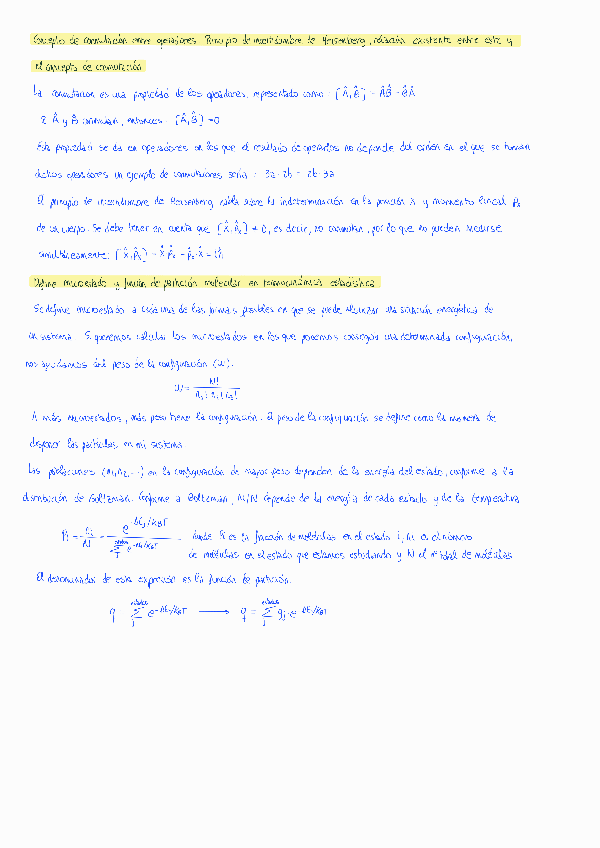 Concepto de conmutación entre operadores. Principio de incertidumbre de Heisenberg, relación existente entre este y
el concepto de conmutación
La conmutación es una propiedad de los operadores, representado como: [Â, B̂] = ÂB̂ - B̂Â
Si Â y B̂ conmutan, entonces [Â, B̂] = 0
Esta propiedad se da en operadores en los que el resultado de operarlos no depende del orden en el que se toman
dichos operadores un ejemplo de conmutadores sería: 3a · 2b = 2b · 3a
El principio de incertidumbre de Heisenberg, habla sobre la indeterminación en la posición x y momento lineal pₓ
de un cuerpo. Se debe tener en cuenta que [x̂, p̂ₓ] ≠ 0, es decir, no conmutan, por lo que no pueden medirse
simultáneamente: [x̂, p̂ₓ] = x̂ p̂ₓ - p̂ₓ x̂ = iħ
Define microestado y función de partición molecular en termodinámica estadística
Se define microestado a cada una de las formas posibles en que se puede alcanzar una situación energética de
un sistema. Si queremos calcular los microestados en los que podemos conseguir una determinada configuración,
nos ayudamos del peso de la configuración (W).
W = N! / n₁! n₂! n₃!
A más microestados, más peso tiene la configuración. El peso de la configuración se define como la manera de
disponer las partículas en mi sistema
Las poblaciones (n₁, n₂, ...) en la configuración de mayor peso dependen de la energía del estado, conforme a la
distribución de Boltzman. Conforme a Boltzman, Ni/N depende de la energía de cada estado y de la temperatura
donde Pi es la fracción de moléculas en el estado i, ni es el número
de moléculas en el estado que estamos estudiando y N el nº total de moléculas
El denominador de esta expresión es la función de partición.